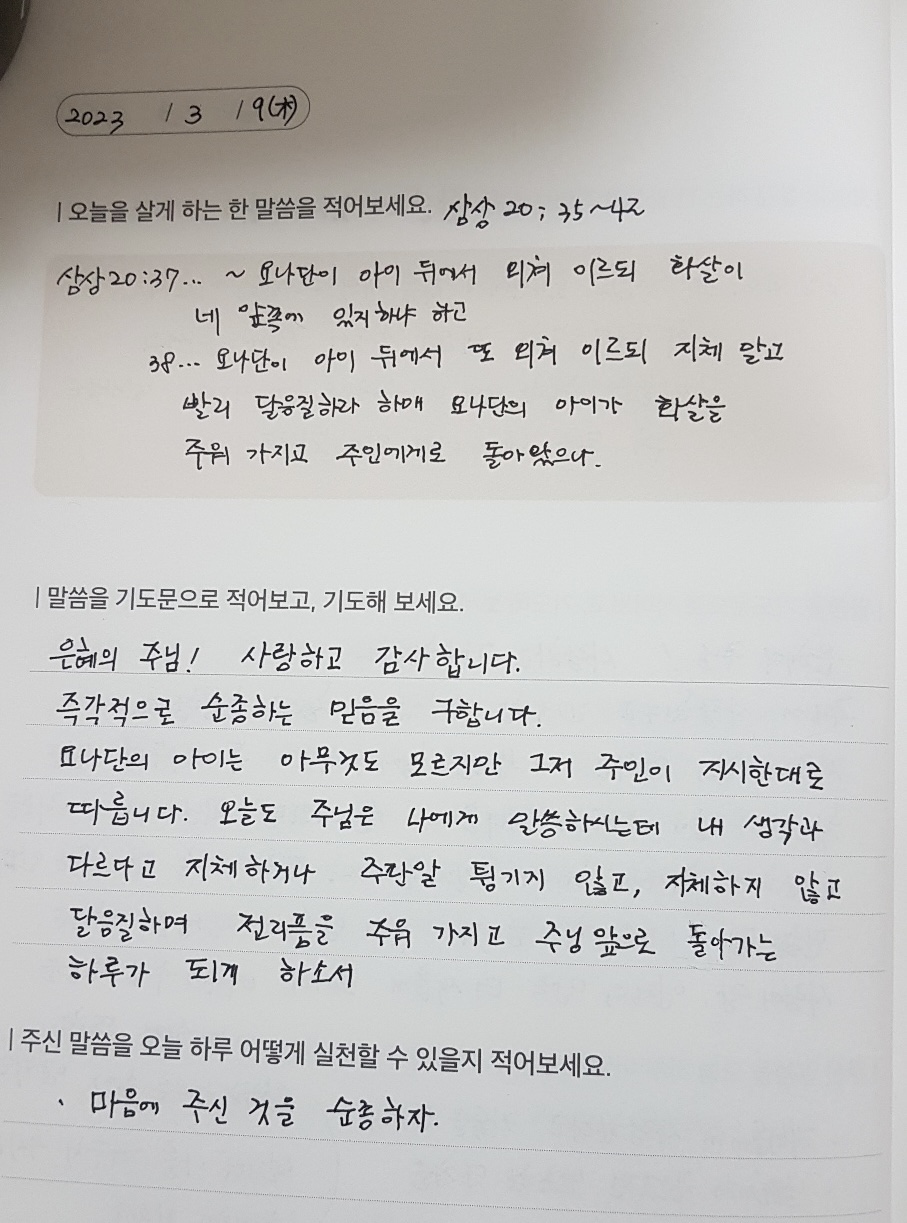 2023 / 3 / 9(木)
| 오늘을 살게 하는 한 말씀을 적어보세요. 삼상 20 : 35~42
삼상20:37... ~ 요나단이 아이 뒤에서 외쳐 이르되 화살이
네 앞쪽에 있지하냐 하고
38... 요나단이 아이 뒤에서 또 외쳐 이르되 지체 말고
빨리 달음질하라 하매 요나단의 아이가 화살을
주워 가지고 주인에게로 돌아왔으나.
| 말씀을 기도문으로 적어보고, 기도해 보세요.
은혜의 주님! 사랑하고 감사합니다.
즉각적으로 순종하는 믿음을 구합니다.
요나단의 아이는 아무것도 모르지만 그저 주인이 지시한대로
따릅니다. 오늘도 주님은 나에게 말씀하시는데 내 생각과
다르다고 지체하거나 주판알 튕기지 않고, 지체하지 않고
달음질하며 전리품을 주워 가지고 주님 앞으로 돌아가는
하루가 되게 하소서
| 주신 말씀을 오늘 하루 어떻게 실천할 수 있을지 적어보세요.
· 마음에 주신 것을 순종하자.